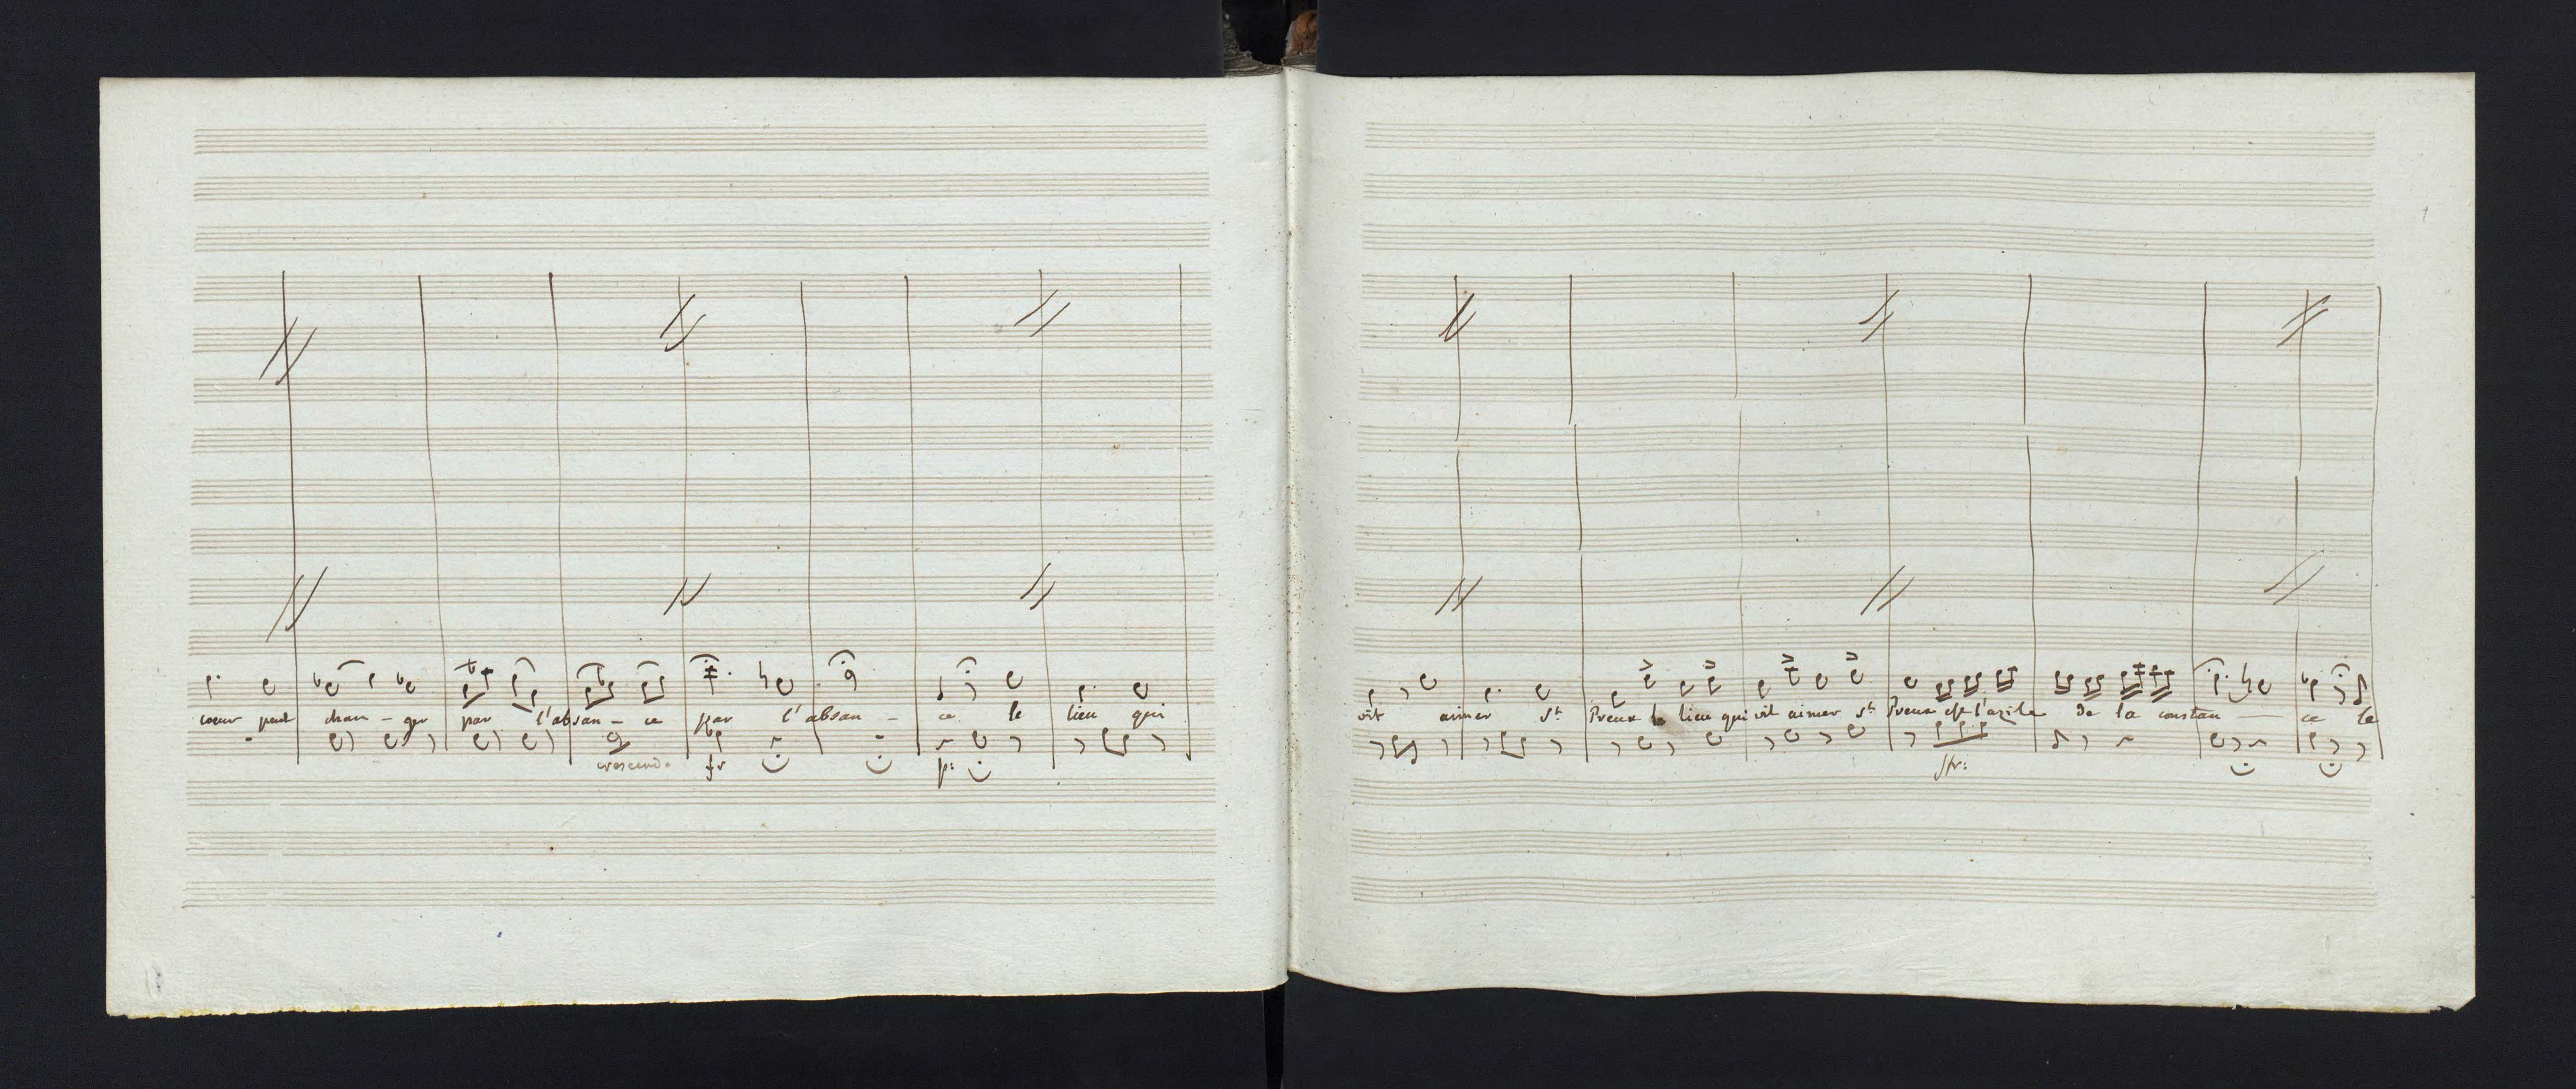 coeur peut chan - ger par l'absan - ce par l'absan - ce le lieu qui
crescendo fr p:
vit aimer St Preux le lieu qui vit aimer St Preux est l'azile de la constan - ce le
sfr: